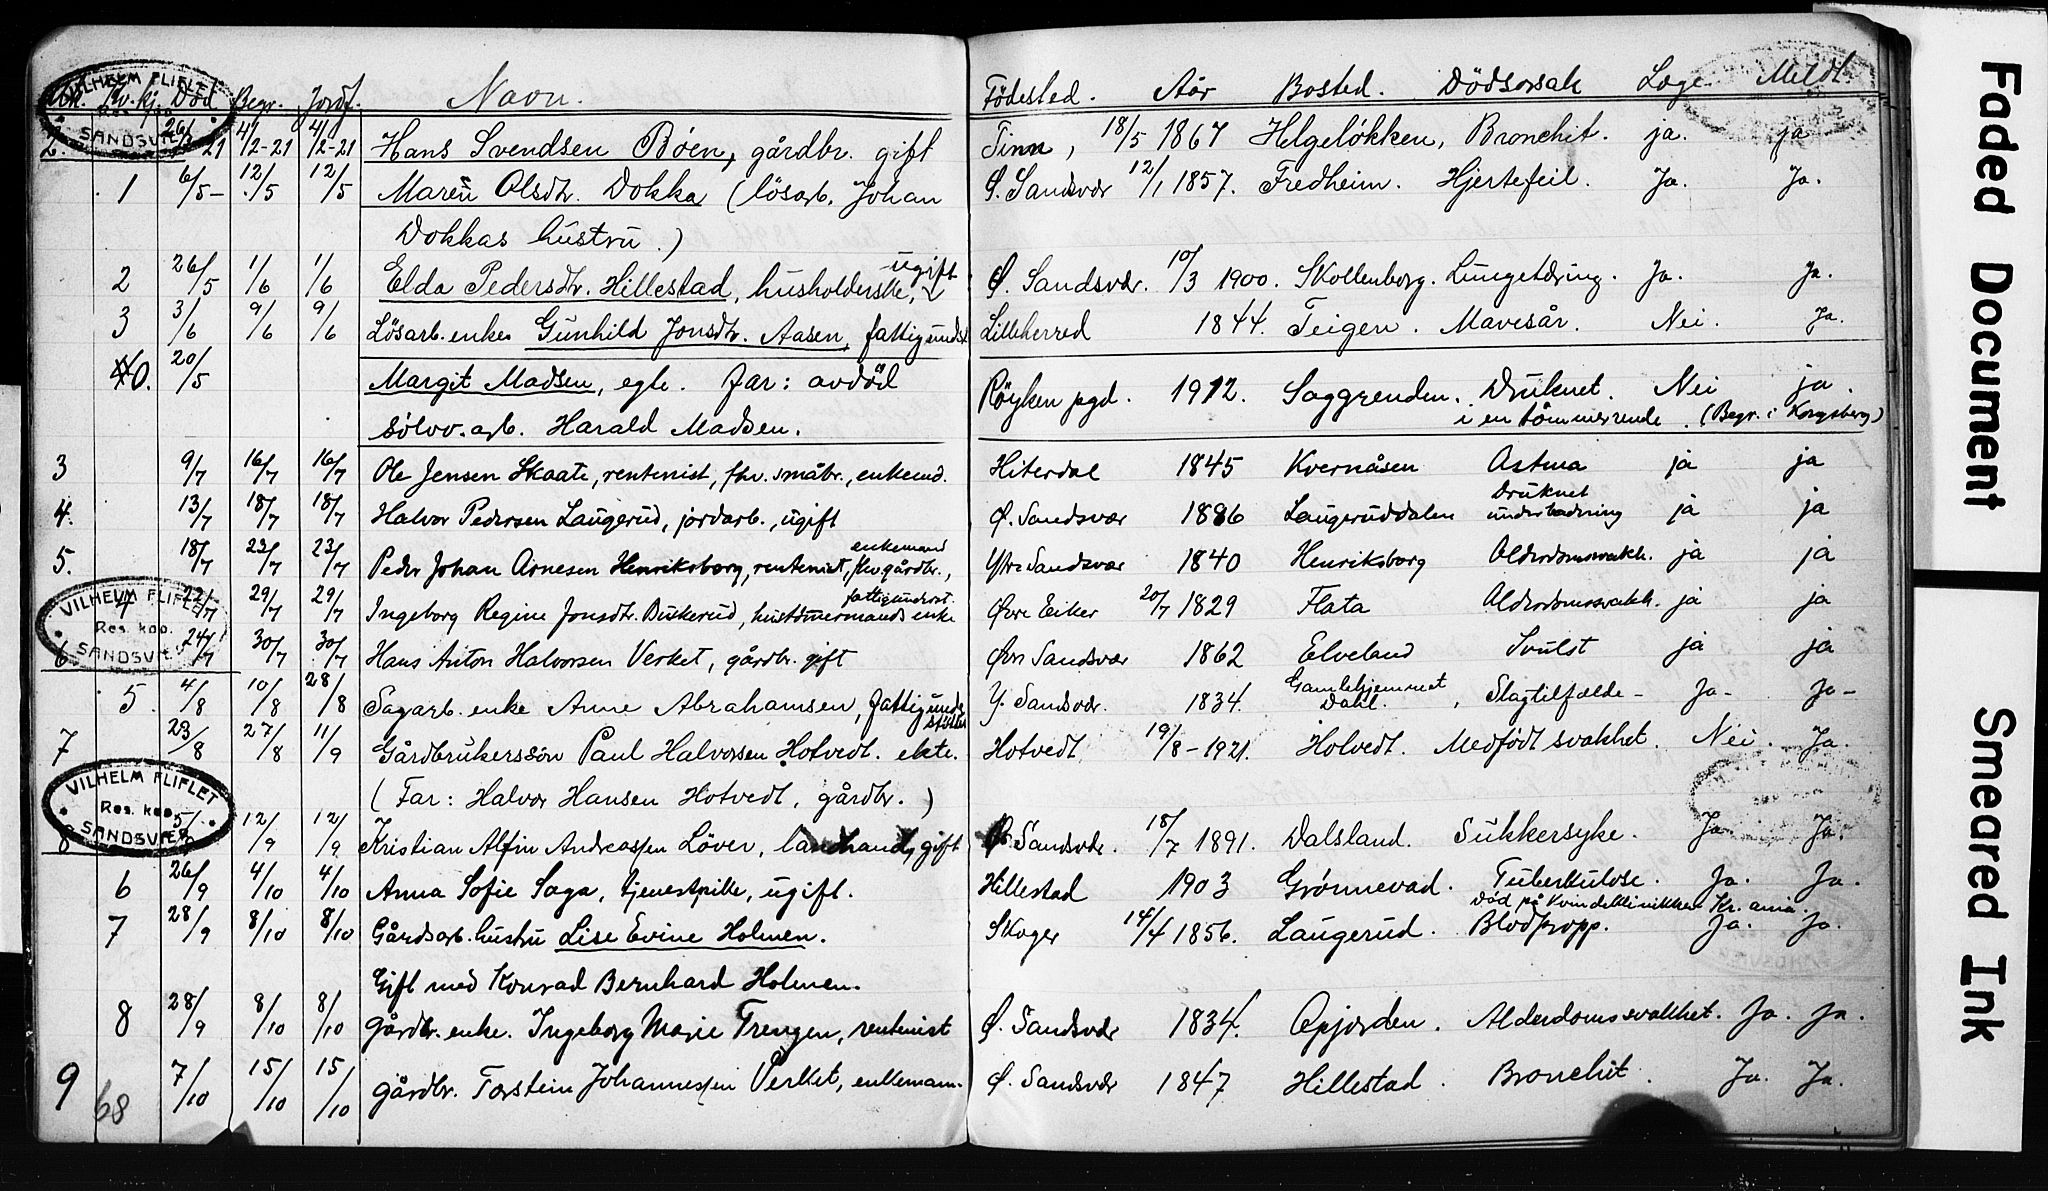 Mk. Kv.kj. Død Begr. Jordf. Navn. Fødested. Aar Bosted. Dødsorsak Læge Meldt
VILHELM FLIFLET
Res. kap.
SANDSVÆR
2. 26/1 21 4/2-21 4/2-21 Hans Svendsen Bøen, gårdbr. gift Tinn, 18/5 1867 Helgeløkken, Bronchit. ja. ja
1 6/5- 12/5 12/5 Maren Olsdtr. Dokka (løsarb. Johan Ø. Sandsvær 12/1 1857. Fredheim. Hjertefeil. Ja. Ja.
Dokkas hustru.)
2 26/5 1/6 1/6 Elda Pedersdtr. Hillestad, husholderske, ugift Ø. Sandsvær. 10/3 1900. Skollenborg. Lungetæring. Ja. Ja.
3 3/6 9/6 9/6 Løsarb. enke Gunhild Jonsdtr. Aasen, fattigunderst Lilleherred 1844. Teigen. Mavesår. Nei. Ja.
0. 20/5 Margit Madsen, egte. Far: avdød Røyken pgd. 1912. Saggrenden. Druknet. Nei ja.
sølvv. arb. Harald Madsen. i en tømmerrende. (Begr. i Kongsberg)
3 9/7 16/7 16/7 Ole Jensen Skaate, rentenist, fhv. småbr., enkemd. Hiterdal 1845 Kvernåsen Astma ja ja
4. 13/7 18/7 18/7 Halvor Pedersen Laugerud, jordarb., ugift Ø. Sandsvær 1886 Laugeruddalen Druknet under badning ja ja
5. 18/7 23/7 23/7 Peder Johan Arnesen Henriksborg, rentenist, fhv gårdbr., enkemand Ytre Sandsvær 1840 Henriksborg Alderdomssvakh. ja ja
4 22/7 29/7 29/7 Ingeborg Regine Jonsdtr. Buskerud, hustømmermands enke fattigunderst. Øvre Eiker 20/7 1829 Flata Alderdomssvakh. ja ja
VILHELM FLIFLET
Res. kap.
SANDSVÆR
6 24/7 30/7 30/7 Hans Anton Halvorsen Verket, gårdbr. gift Øvre Sandsvær 1862 Elveland Svulst ja ja
5. 4/8 10/8 28/8 Sagarb. enke Anne Abrahamsen, fattigunderstøttet Y. Sandsvær. 1834. Gamlehjemmet Dahl. Slagtilfælde - Ja - Ja -
7 23/8 27/8 11/9 Gårdbrukerssøn Paul Halvorsen Hotvedt. ekte. Hotvedt 19/8-1921. Hotvedt. Medfødt svakhet. Nei. Ja.
(Far: Halvor Hansen Hotvedt, gårdbr.)
VILHELM FLIFLET
Res. kap.
SANDSVÆR
8 5/9 12/9 12/9 Kristian Alfin Andreassen Løver, landhandl, gift Ø. Sandsvær. 18/7 1891. Dalsland. Sukkersyke. Ja Ja.
6 26/9 4/10 4/10 Anna Sofie Saga, tjenestpike, ugift. Hillestad 1903 Grønnevad. Tuberkulose. Ja. Ja.
Død på Kvindeklinikken Kr.ania.
7 28/9 8/10 8/10 Gårdsarb. hustru Lise Evine Holmen. Skoger 14/4 1856. Laugerud. Blodpropp. Ja. Ja.
Gift med Konrad Bernhard Holmen.
8 28/9 8/10 8/10 Gårdbr. enke. Ingeborg Marie Trengen, rentenist Ø. Sandsvær 1834. Opjorden. Alderdomssvakhet. Ja. Ja.
9 7/10 15/10 15/10 Gårdbr. Torstein Johannessen Verket, enkemann. Ø. Sandsvær 1847 Hillestad. Bronchit. Ja. Ja.
68
Faded Document
Smeared Ink